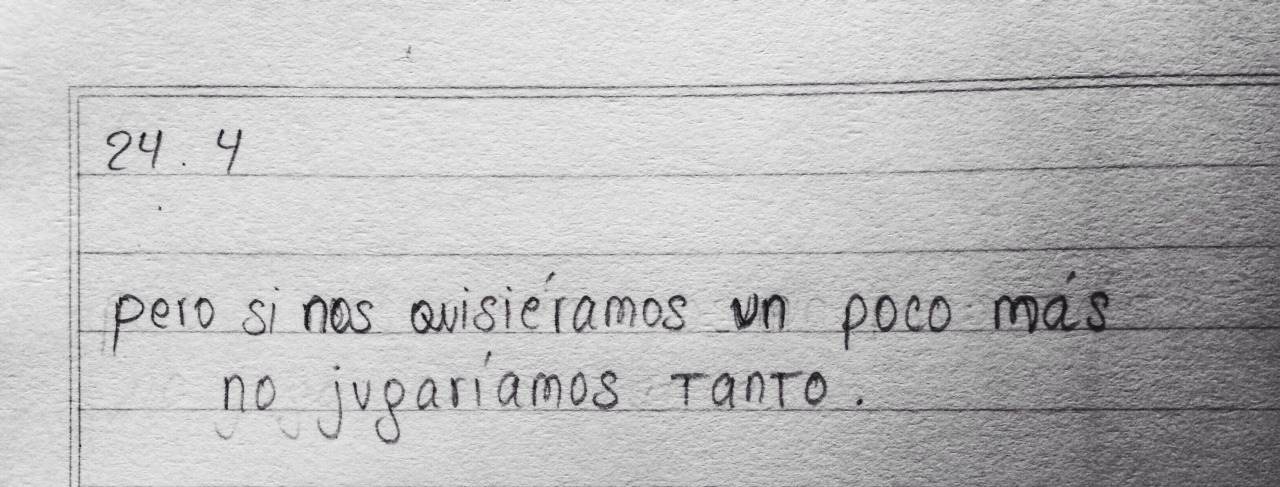 24.4
pero si nos quisiéramos un poco más
no jugaríamos tanto.